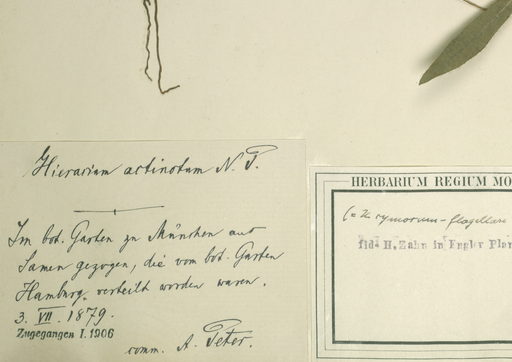 Hieracium actinotum N. P.
Im bot. Garten zu München aus
Samen gezogen, die vom bot. Garten
Hamburg verteilt worden waren.
3. VII. 1879.
Zugegangen I. 1906
comm. A. Peter.
HERBARIUM REGIUM MO
(= H. cymosum - flagellare
fide H. Zahn in Engler Pfla